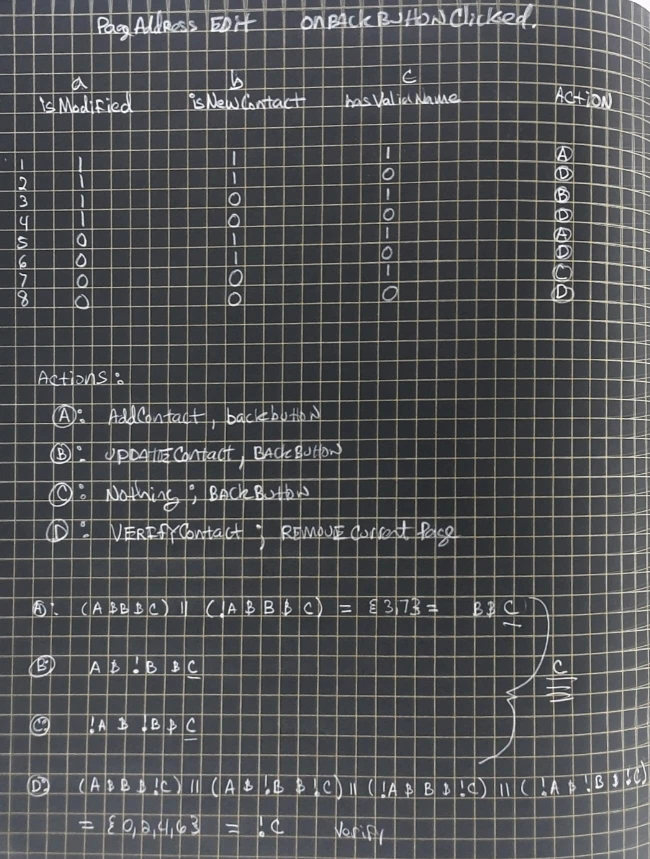 Pag Address EDit ON BACk BuTtoN Clicked.
a b c
Is Modified is New Contact has Valid Name ACTiON
1 1 1 1 A
2 1 1 0 D
3 1 0 1 B
4 1 0 0 D
5 0 1 1 A
6 0 1 0 D
7 0 0 1 C
8 0 0 0 D
Actions:
A: AddContact, backbutton
B: UPDATE Contact, BACk Button
C: Nothing; BACk Button
D: VERIFY Contact; REMOVE Current Page
A: (A & B & C) || (!A & B & C) = {3,7} = B & C
B: A & !B & C
C
C: !A & !B & C
D: (A & B & !C) || (A & !B & !C) || (!A & B & !C) || (!A & !B & !C)
= {0,2,4,6} = !C Verify